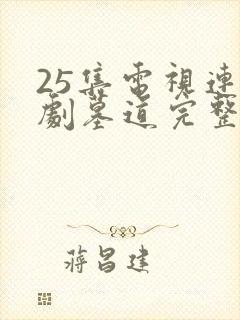 25集電視連
劇墓道完整
蔣昌建